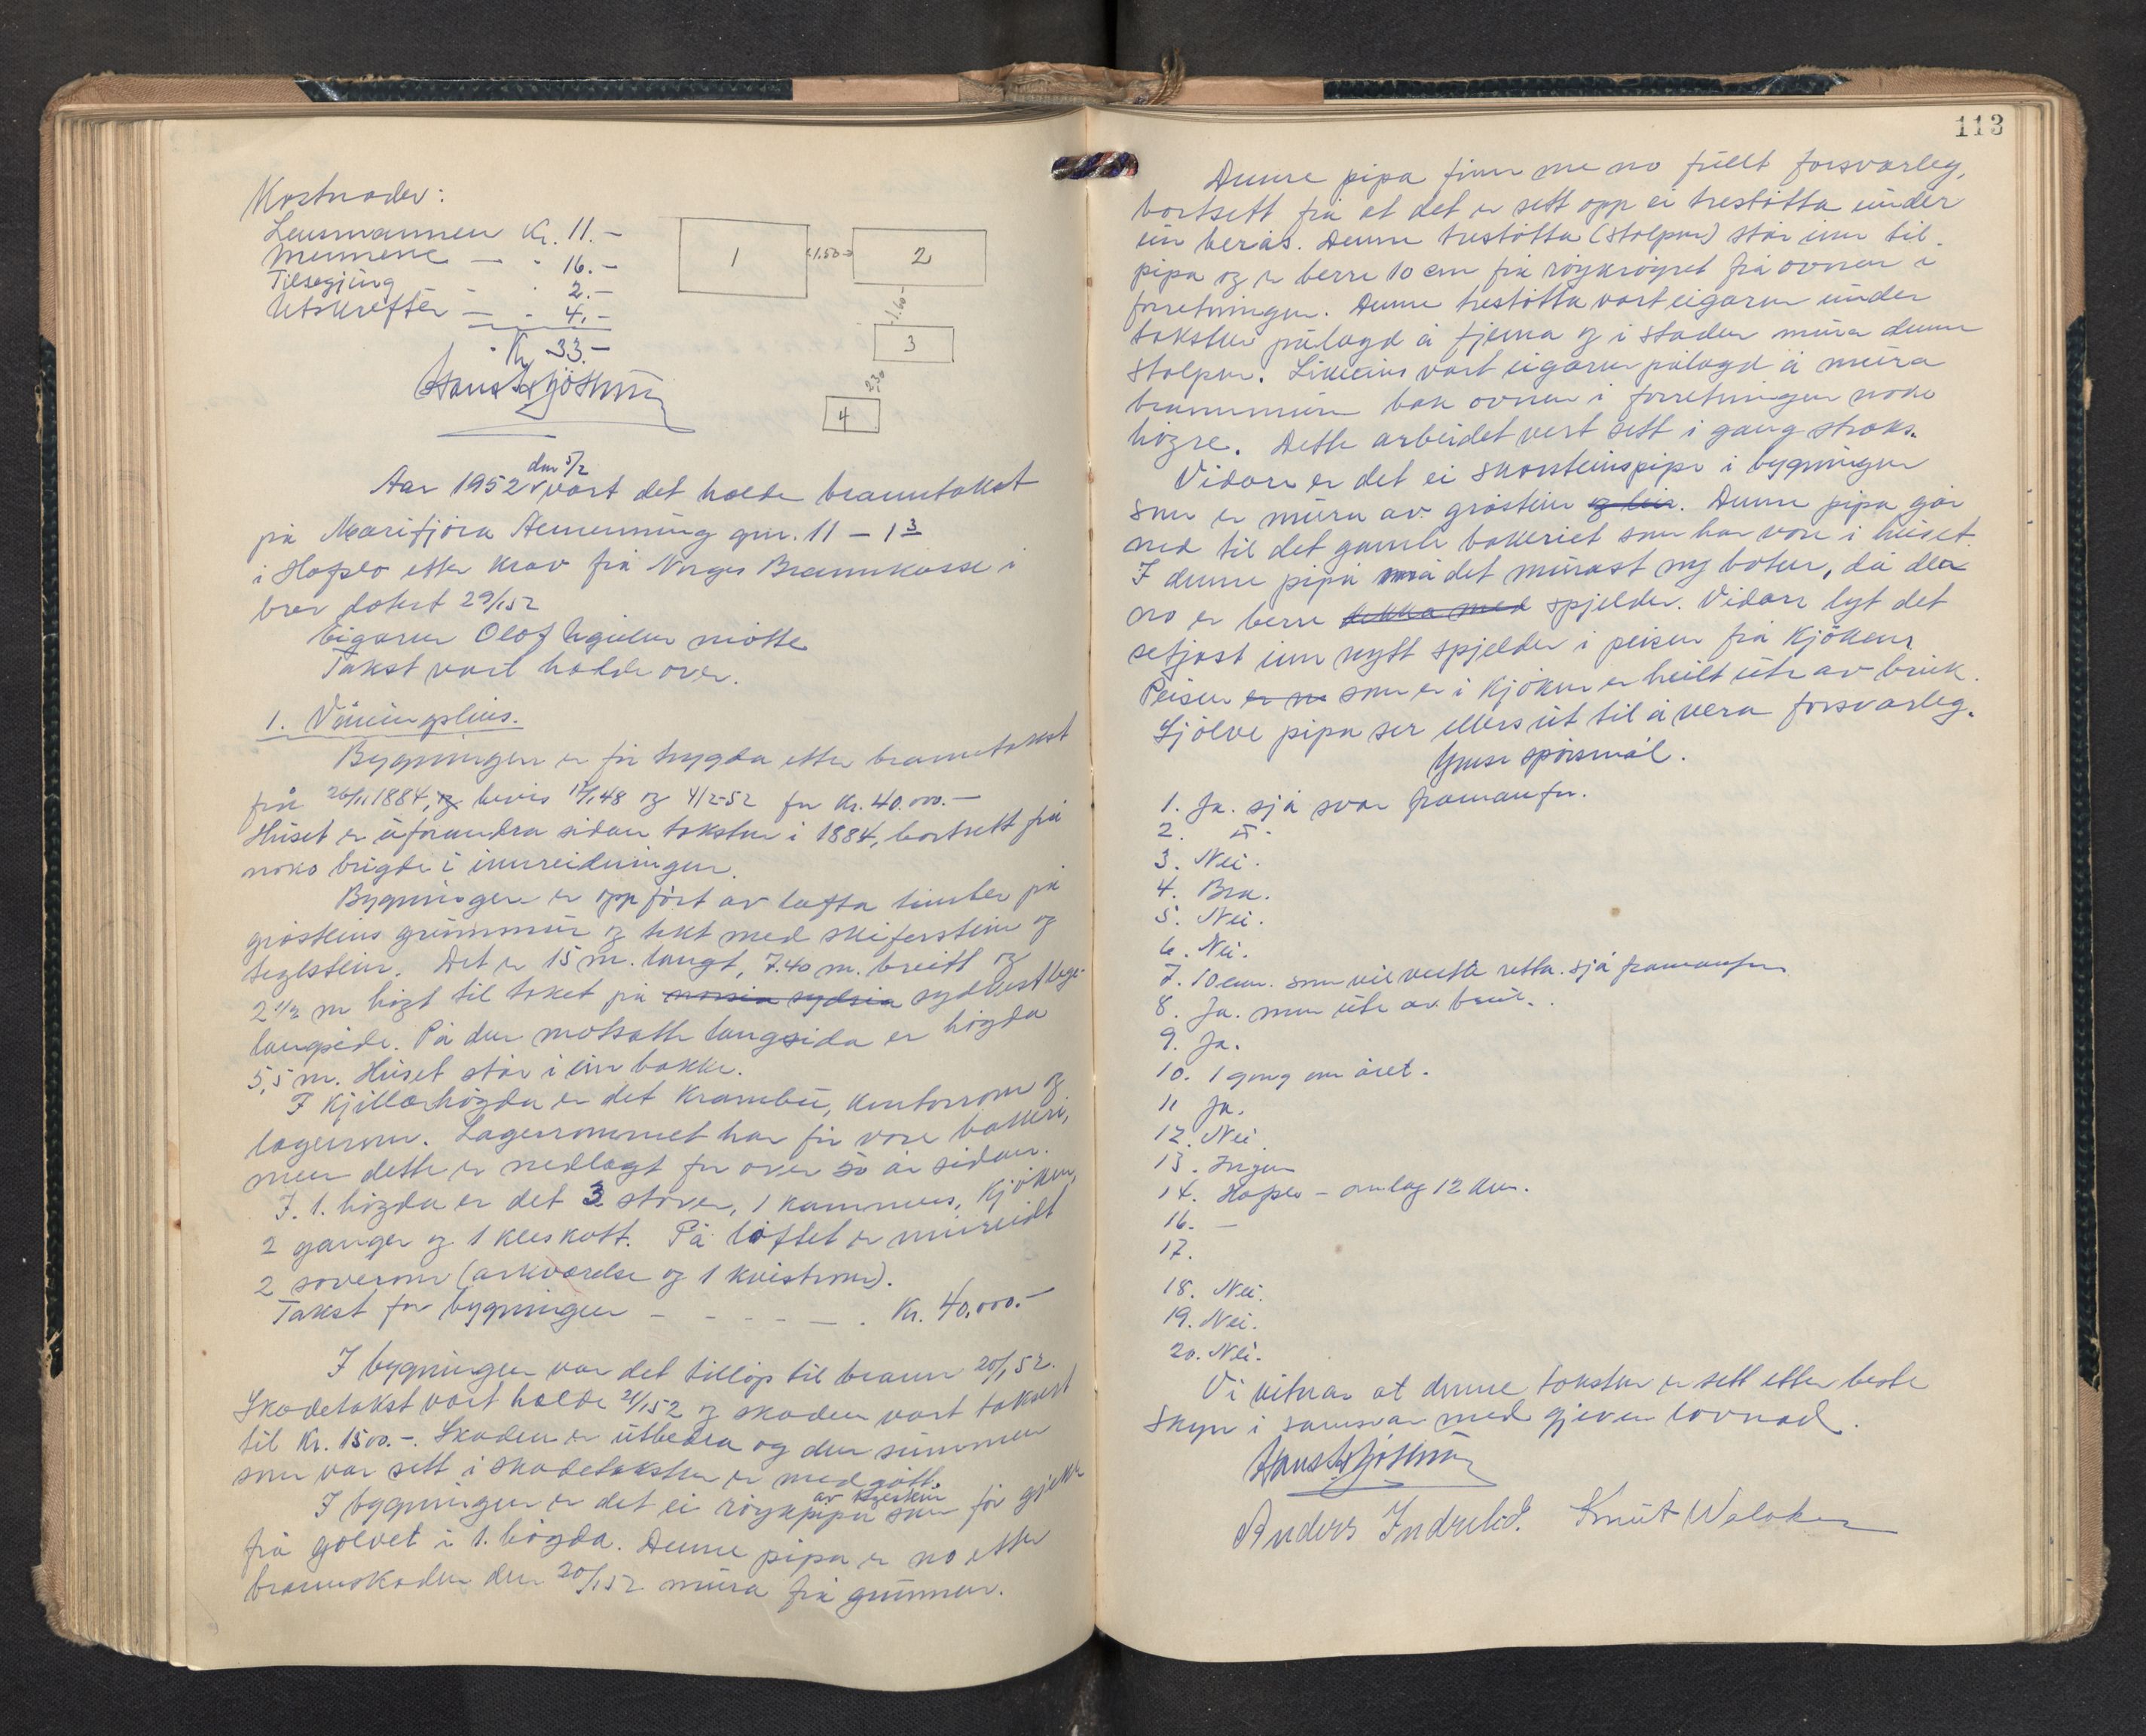 Kostnader:
Lensmannen Kr. 11.-
Mennene — - 16.-
Tilsegjing - - 2.-
Utskrifter — - 4.-
Kr. 33.-
1
<1.50>
2
1.60
3
2.30
4
Aar 1952 den 5/2 vart det halde branntakst
på Marifjøra Hemenning gnr. 11 - 1 3
i Hafslo etter krav frå Norges Brannkasse i
brev datert 29/1 52
Eigaren Olaf møtte
Takst vart halde over.
1. Våningshus.
Bygningen er før trygda etter branntakst
frå 26/11 1884, og bevis 17/1 48 og 4/2-52 for Kr. 40.000.-
Huset er uforandra sidan taksten i 1884, bortsett frå
noko brigde i innreidningen.
Bygningen er oppført av lafta timber på
gråsteins grunnmur og tekt med skiferstein og
teglstein. Det er 15 m. langt, 7.40 m. breitt og
2 1/2 m høgt til taket på norsia sydsia sydvestlege
langside. På den motsatte langsida er høgda
5,5 m. Huset står i ein bakke.
I kjellarhøgda er det krambu, kontorrom og
lagerrom. Lagerrommet har før vore bakeri,
men dette er nedlagt for over 50 år sidan.
I. 1. høgda er det 3 stover, 1 kammers, kjøken,
2 ganger og 1 kleskott. På loftet er innreidt
2 soverom (arkværelse og 1 kvistrom).
Takst for bygningen - - - - - . Kr. 40.000.-
I bygningen var det tilløp til brann 20/1 52.
Skadetakst vart halde 21/1 52 og skaden vart taksert
til Kr. 1500.-. Skaden er utbedra og den summen
som var sett i skadetaksten er medgått.
I bygningen er det ei røykpipe av teglstein som før gjekk
frå golvet i 1. høgda. Denne pipa er no etter
brannskaden den 20/1 52 mura frå grunnen.
113
Denne pipa finn me no fullt forsvarleg,
bortsett frå at det er sett opp ei trestøtta under
ein beras. Denne trestøtta (stolpen) står inn til
pipa og er berre 10 cm frå røykrøyret frå ovnen i
forretningen. Denne trestøtta vart eigaren under
taksten pålagd å fjerna og i staden mura denne
stolpen. Likeeins vart eigaren pålagd å mura
brannmuren bak ovnen i forretningen noko
høgre. Dette arbeidet vert sett i gang straks.
Vidare er det ei skorsteinspipe i bygningen
som er mura av gråstein og leir. Denne pipa går
ned til det gamle bakeriet som har vore i huset.
I denne pipa må det murast ny botn, då der
no er berre tekka med spjelder. Vidare lyt det
setjast inn nytt spjelder i peisen frå kjøken.
Peisen er no som er i kjøken er heilt ute av bruk.
Sjølve pipa ser ellers ut til å vera forsvarleg.
Ymse spørsmål.
1. Ja. sjå svar framanfor.
2. —"—
3. Nei.
4. Bra.
5. Nei.
6. Nei.
7. 10 cm. som vil verta retta. sjå framanfor
8. Ja. men ute av bruk.
9. Ja.
10. 1 gong om året.
11 Ja.
12. Nei
13. Ingen
14. Hafslo - omlag 12 km.
16. —
17.
18. Nei.
19. Nei.
20. Nei.
Vi vitnar at denne taksten er sett etter beste
skyn i samsvar med gjeven lovnad.
Anders Indrebø. Knut Walaker